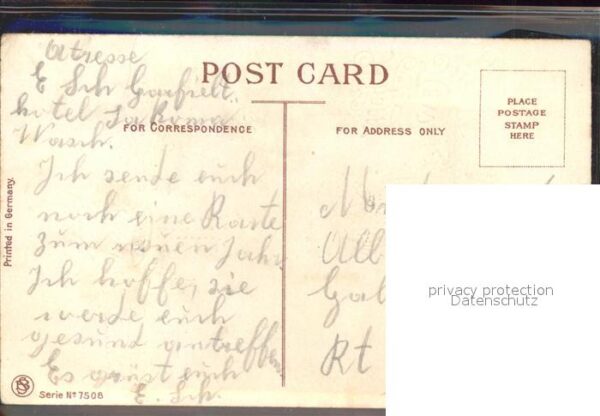 Adresse
POST CARD
E Sch Garfield
hotel Takoma
Wasch.
FOR CORRESPONDENCE
FOR ADDRESS ONLY
PLACE
POSTAGE
STAMP
HERE
Ich sende euch
noch eine Karte
zum neuen Jahr.
Ich hoffe, sie
werde euch
gesund antreffen.
Es grüst euch
E. Sch.
Rt
privacy protection
Datenschutz
Printed in Germany.
Serie No 7508